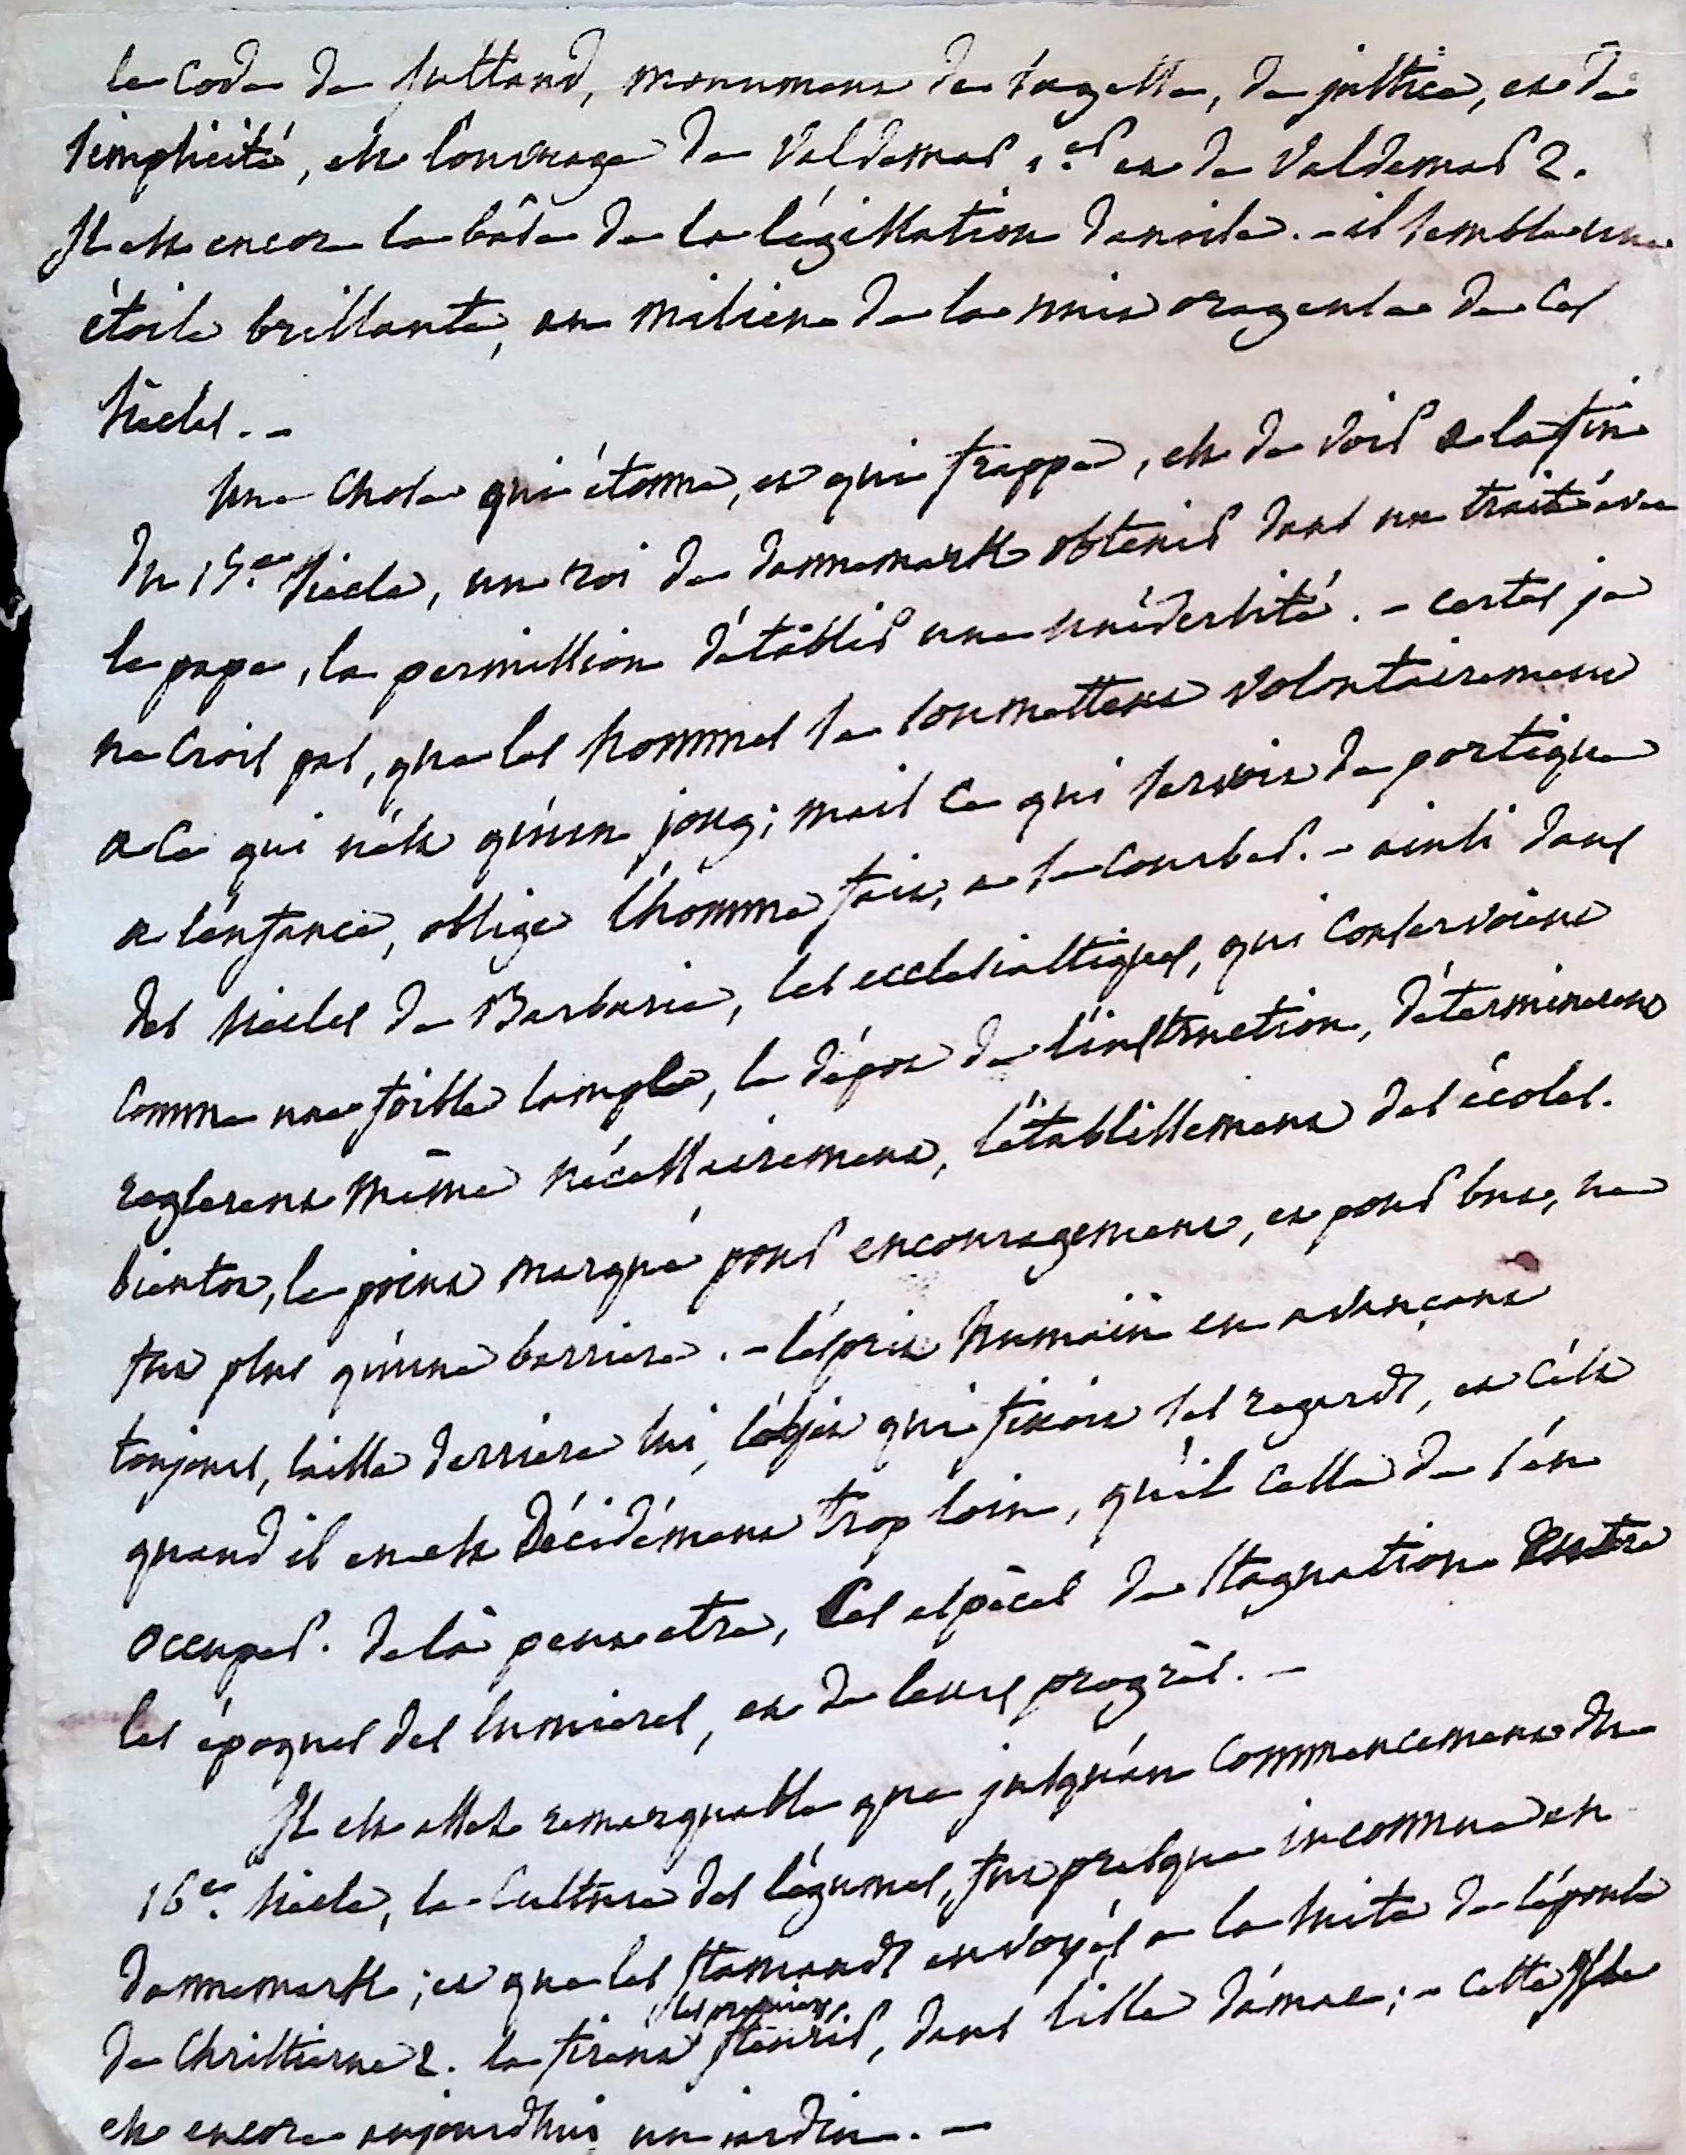 le code de Juttand, monument de sagesse, de justice, et de
simplicité, est l'ouvrage de Valdemar 1.er et de Valdemar 2.
Il est encore la bâse de la législation danoise. - il semble une
étoile brillante, au milieu de la nuit orageuse de ces
siècles. -
Une chose qui étonne, et qui frappe, est de voir a la fin
du 15.e siecle, un roi de dannemark obtenir dans un traité avec
le pape, la permission d'établir une université. - certes je
ne crois pas, que les hommes se soumettent volontairement
a ce qui n'est qu'un joug; mais ce qui servoit de portique
a l'enfance, oblige l'homme fait, a se courber. - ainsi dans
des siecles de Barbarie, les ecclesiastiques, qui conservoient
comme une foible lampe, le dépot de l'instruction, déterminerent
reglerent même nécessairement, l'établissement des écoles.
bientot, le point marqué pour encouragement, et pour but, ne
fut plus qu'une barriere. - l'esprit humain en avançant
toujours, laisse derriere lui, l'objet qui fixoit ses regards, et c'est
quand il en est décidément trop loin, qu'il cesse de s'en
occuper. de là peut etre, ces espèces de stagnation entre
les époques des lumieres, et de leurs progrès. -
Il est assez remarquable que jusqu'au commencement du
16.e siecle, la culture des légumes, fut presque inconnue en
dannemark; et que les flamands envoyés a la suite de l'épouse
de Christierne 2. la firent les premiers fleurir, dans l'isle d'amac; - cette Isle
est encore aujourdhui un jardin. -